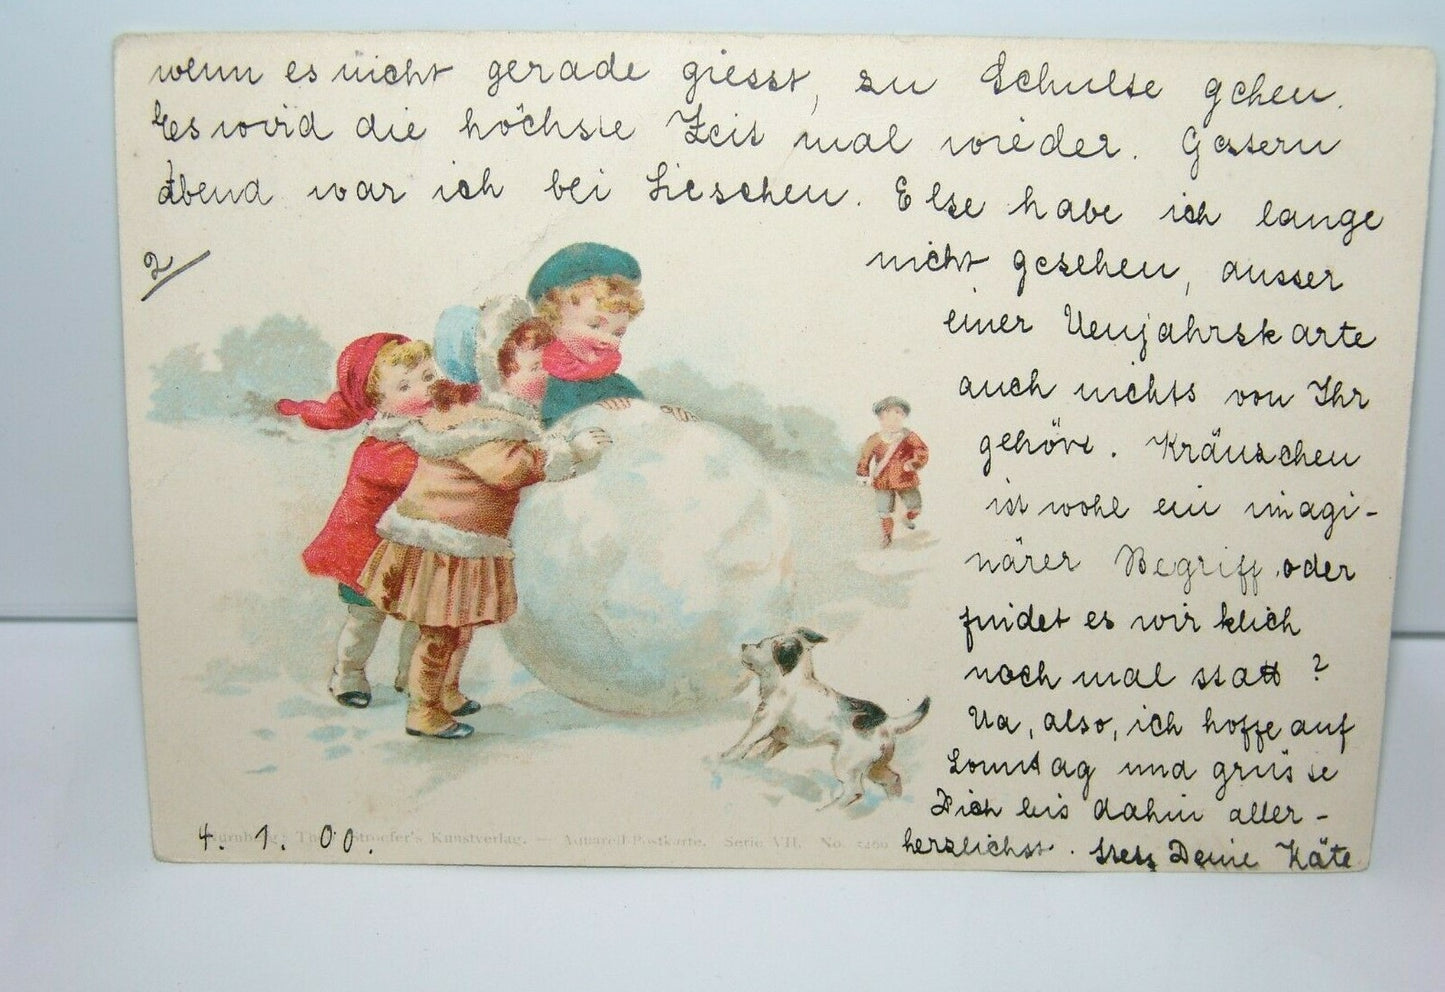 wenn es nicht gerade giesst, zu Schulse gehen.
Es wird die höchste Zeit mal wieder. Gestern
Abend war ich bei Lieschen. Else habe ich lange
2/
nicht gesehen, ausser
einer Neujahrskarte
auch nichts von Ihr
gehört. Kränzchen
ist wohl ein imagi-
närer Begriff oder
findet es wirklich
noch mal statt?
Na, also, ich hoffe auf
Sonntag und grüsse
Dich bis dahin aller-
herzlichst. Stets Deine Käte
4. 1. 00.
Stroefer's Kunstverlag. — Aquarell-Postkarte. Serie VII, No.